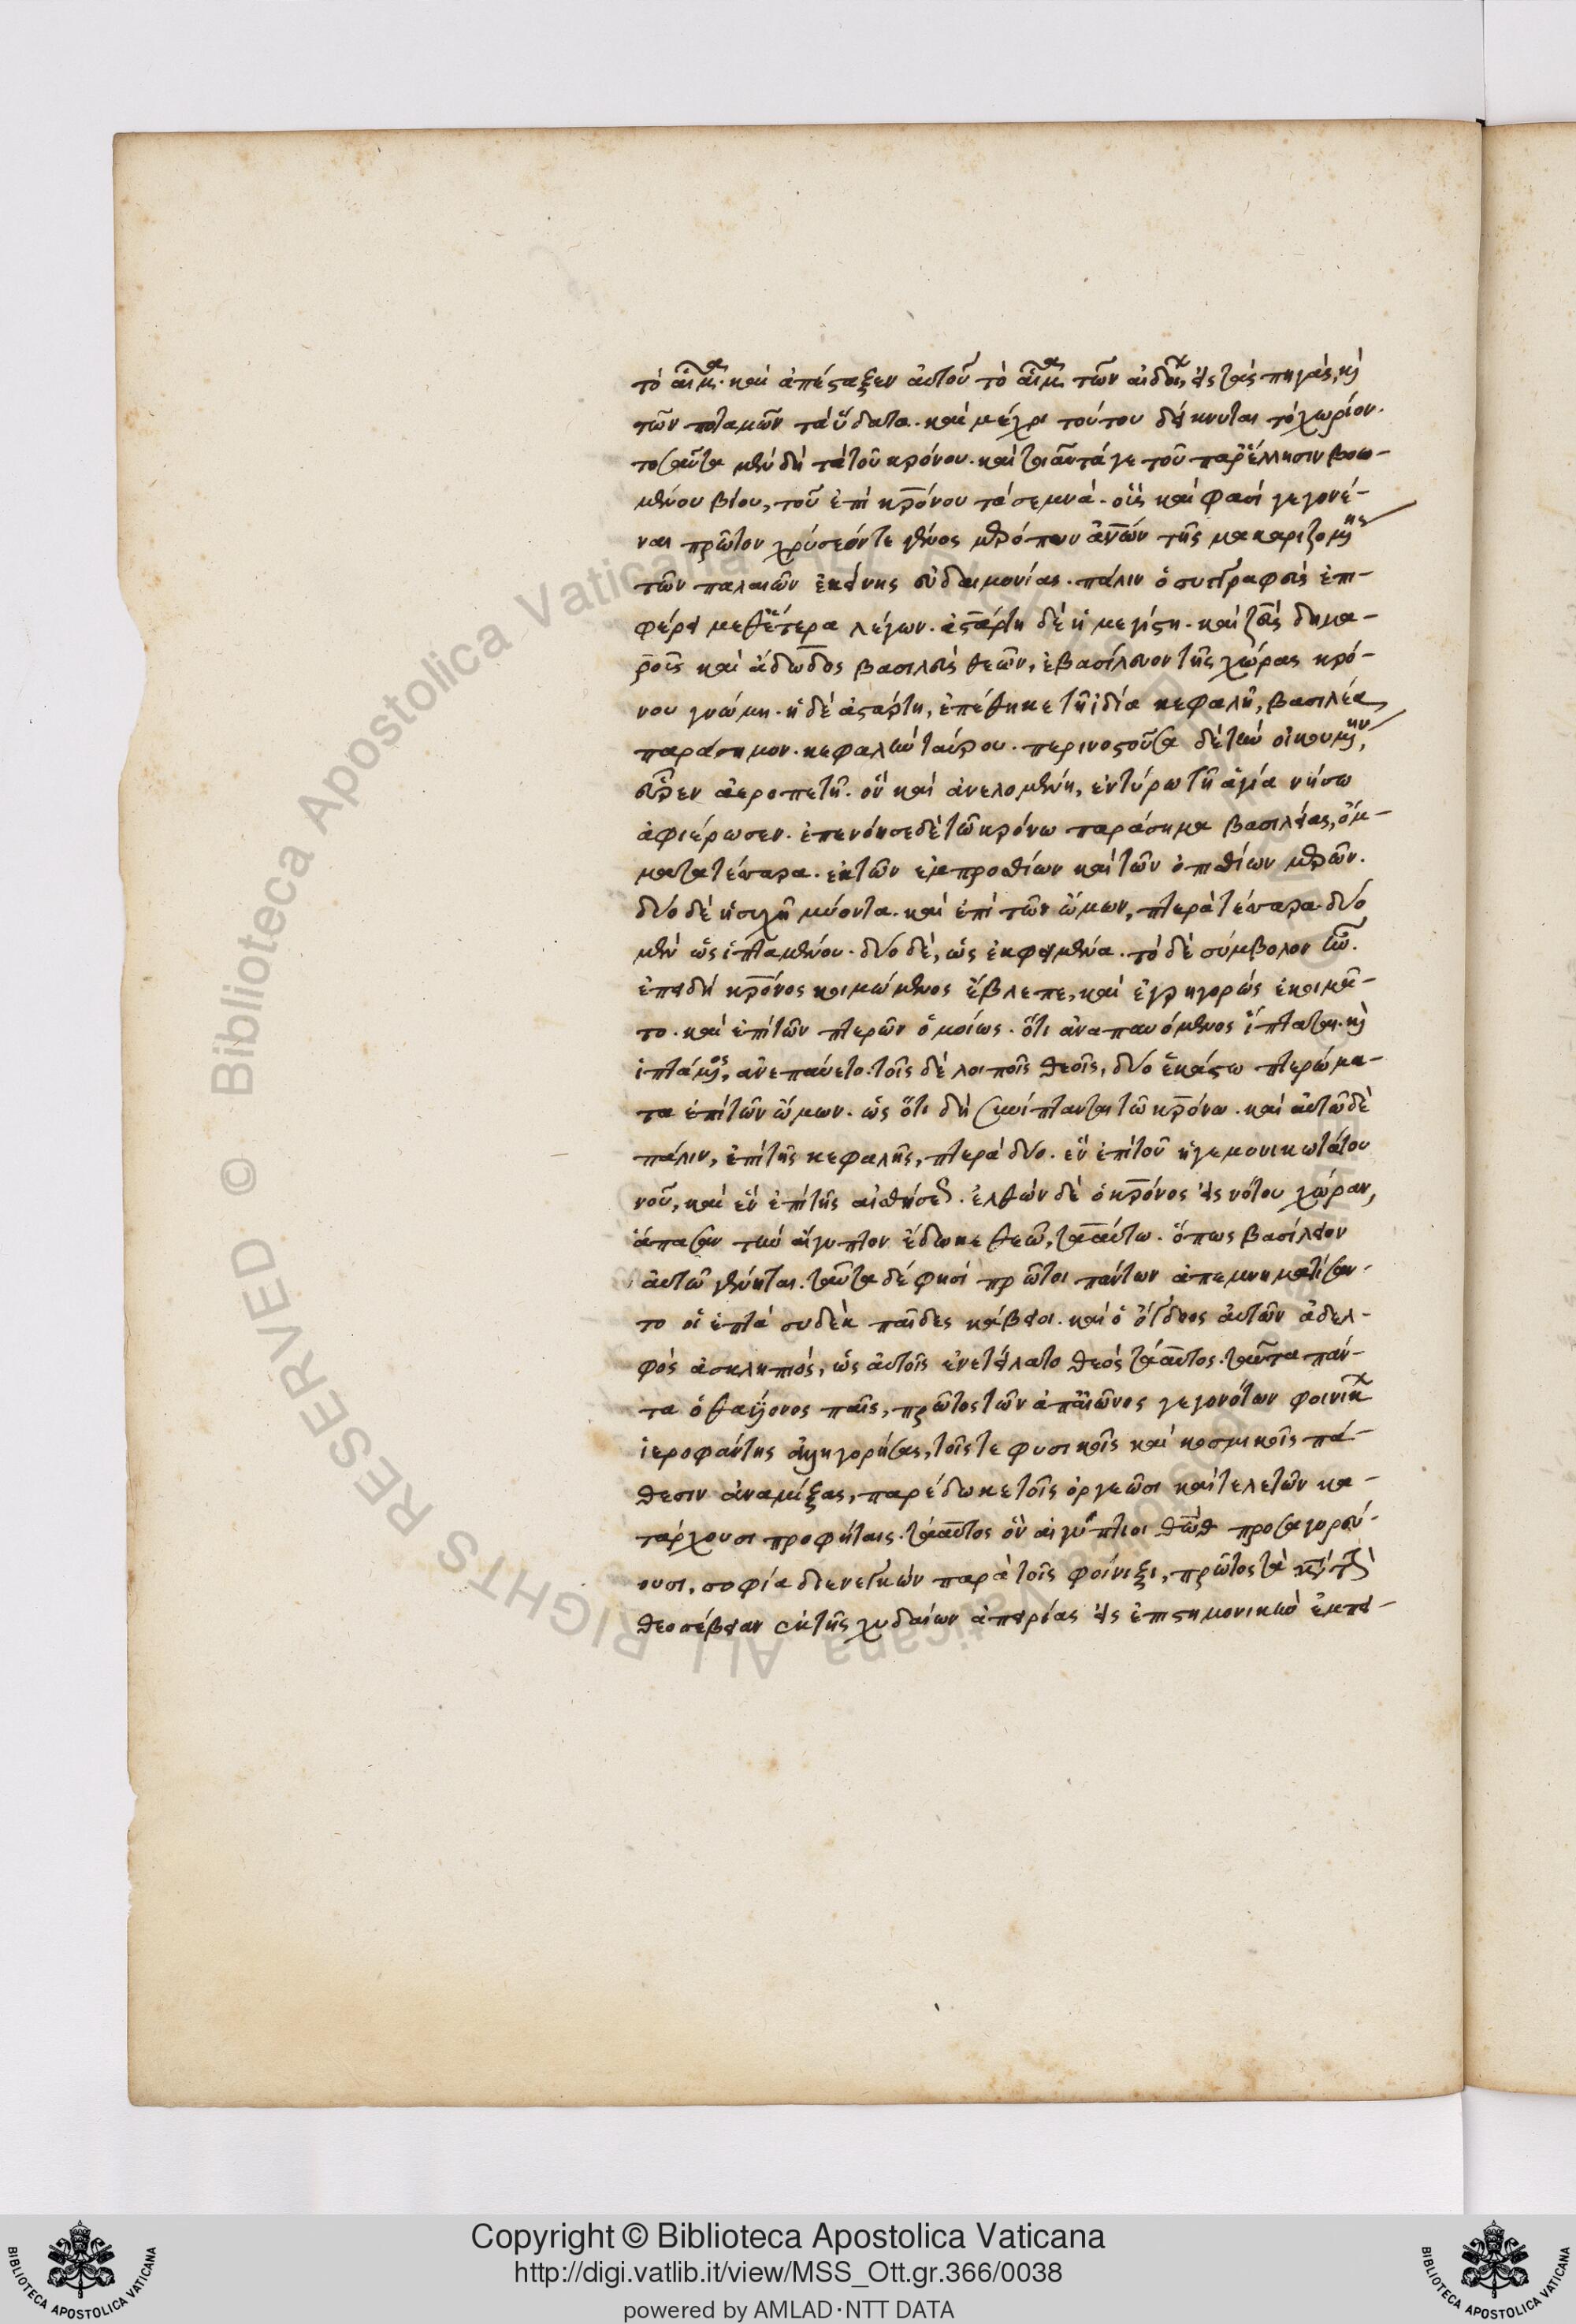 τὸ αἷμα. καὶ ἀπέσταξεν αὐτοῦ τὸ αἷμα τῶν αἰδοίων εἰς τὰς πηγὰς, καὶ
τῶν ποταμῶν τὰ ὕδατα. καὶ μέχρι τούτου δείκνυται τὸ χωρίον.
τοσαῦτα μὲν δὴ τὰ τοῦ κρόνου. καὶ τοιαῦτά γε τοῦ παρ' ἕλλησιν βοω-
μένου βίου, τοῦ ἐπὶ κρόνου τὰ σεμνά. οὓς καί φασι γεγονέ-
ναι πρῶτον χρύσεόν τε γένος μερόπων ἀνῶν τῆς μακαριζομένης
τῶν παλαιῶν ἐκείνης εὐδαιμονίας. πάλιν ὁ συγγραφεὺς ἐπι-
φέρει μεθ' ἕτερα λέγων. ἀστάρτη δὲ ἡ μεγίστη. καὶ ζεὺς δημα-
ροῦς καὶ ἄδωδος βασιλεὺς θεῶν, ἐβασίλευον τῆς χώρας κρό-
νου γνώμη. ἡ δὲ ἀστάρτη, ἐπέθηκε τῆ ἰδία κεφαλῆ, βασιλέας
παράσημον. κεφαλὴν ταύρου. περινοστοῦσα δὲ τὴν οἰκουμένην,
εὗρεν ἀεροπετῆ. ὃν καὶ ἀνελομένη, ἐν τύρω τῆ ἁγία νήσω
ἀφιέρωσεν. ἐπενόησε δὲ τῶ κρόνω παράσημα βασιλείας, ὄμ-
ματα τέσσαρα. ἐκ τῶν ἐμπροσθίων καὶ τῶν ὀπισθίων μερῶν.
δύο δὲ ἡσυχῆ μύοντα. καὶ ἐπὶ τῶν ὤμων, πτερὰ τέσσαρα. δύο
μὲν ὡς ἱπταμένου. δύο δὲ, ὡς ἐκφειμένα. τὸ δὲ σύμβολον ἦν.
ἐπειδὴ κρόνος κοιμώμενος ἔβλεπε, καὶ ἐγρηγορὼς ἐκοιμᾶ-
το. καὶ ἐπὶ τῶν πτερῶν ὁμοίως. ὅτι ἀναπαυόμενος ἵπτατο. καὶ
ἱπτάμενος, ἀνεπαύετο. τοῖς δὲ λοιποῖς θεοῖς, δύο ἑκάστω πτερώμα-
τα ἐπὶ τῶν ὤμων. ὡς ὅτι δὴ συνίπταντο τῶ κρόνω. καὶ αὐτῶ δὲ
πάλιν, ἐπὶ τῆς κεφαλῆς, πτερὰ δύο. ἓν ἐπὶ τοῦ ἡγεμονικωτάτου
νοῦ, καὶ ἓν ἐπὶ τῆς αἰσθήσεως. ἐλθὼν δὲ ὁ κρόνος εἰς νότου χώραν,
ἅπασαν τὴν αἴγυπτον ἔδωκε θεῶ, τααύτω. ὅπως βασίλειον
αὐτῶ γένηται. ταῦτα δέ φησι πρῶτοι πάντων ἀπεμνηματίσαν-
το οἱ ἑπτὰ συδὲκ παῖδες κάβειροι. καὶ ὁ ὄγδοος αὐτῶν ἀδελ-
φὸς ἀσκληπιός, ὡς αὐτοῖς ἐνετείλατο θεὸς τάαυτος. ταῦτα πάν-
τα ὁ θαβίωνος παῖς, πρῶτος τῶν ἀπ' αἰῶνος γεγονότων φοινίκων
ἱεροφάντης ἀλληγορήσας, τοῖς τε φυσικοῖς καὶ κοσμικοῖς πά-
θεσιν ἀναμίξας, παρέδωκε τοῖς ὀργεῶσι καὶ τελετῶν κα-
τάρχουσι προφήταις. τάαυτος ὃν αἰγύπτιοι θωὺθ προσαγορεύ-
ουσι, σοφία διενεγκὼν παρὰ τοῖς φοίνιξι, πρῶτος τὰ κατὰ τὴν
θεοσέβειαν ἐκ τῆς χυδαίων ἀπειρίας εἰς ἐπιστημονικὴν ἐμπει-
Copyright © Biblioteca Apostolica Vaticana
http://digi.vatlib.it/view/MSS_Ott.gr.366/0038
powered by AMLAD·NTT DATA